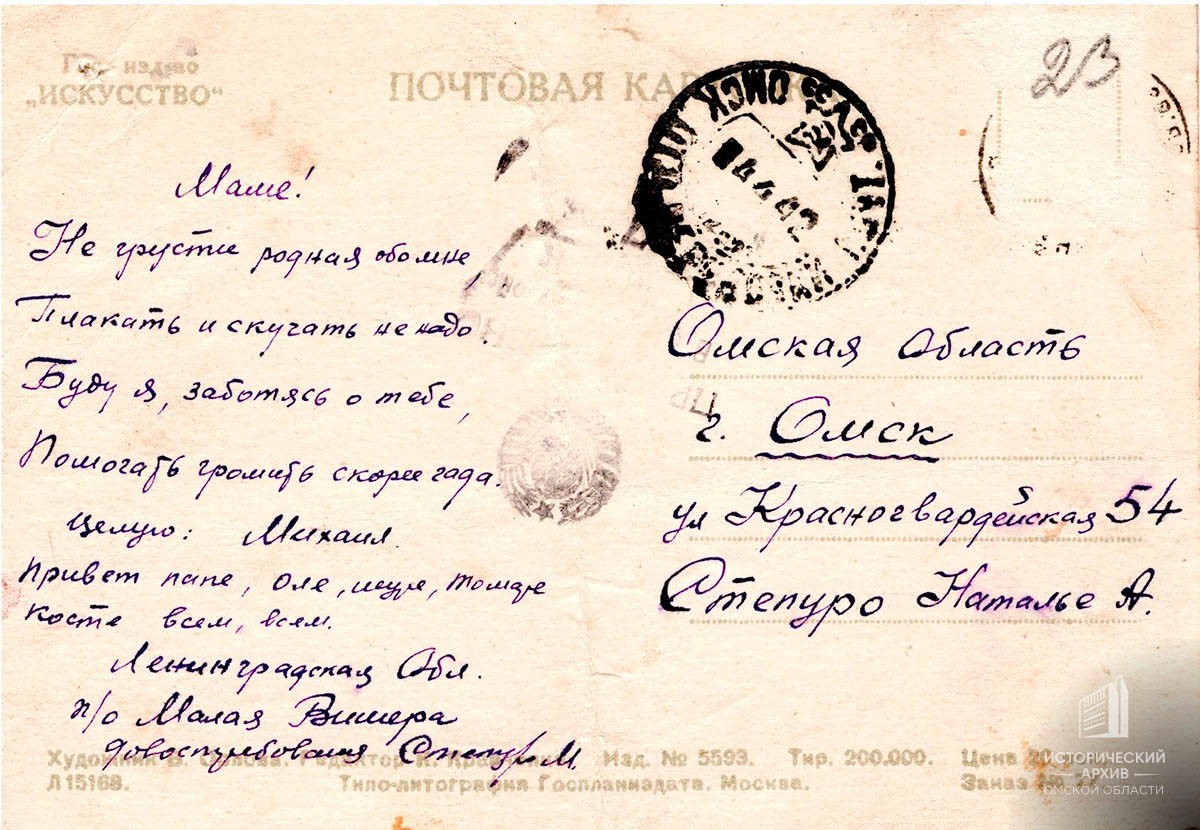 Гос. изд-во
„ИСКУССТВО“
ПОЧТОВАЯ
23
ОМСК
4 4 42
Маме!
Не грусти родная обо мне,
Плакать и скучать не надо.
Буду я, заботясь о тебе,
Помогать громить скорее гада.
Целую: Михаил.
Привет папе, Оле, Шуре, Тамаре
Косте всем, всем.
Ленинградская Обл.
п/о Малая Вишера
довостребования Степуро М.
Омская Область
г. Омск
ул Красногвардейская 54
Степуро Наталье А.
Художник В. Орлова. Редактор Изд. № 5593. Тир. 200.000. Цена
Л15168. Типо-литография Госпланиздата. Москва. Заказ
ИСТОРИЧЕСКИЙ
АРХИВ
ОМСКОЙ ОБЛАСТИ